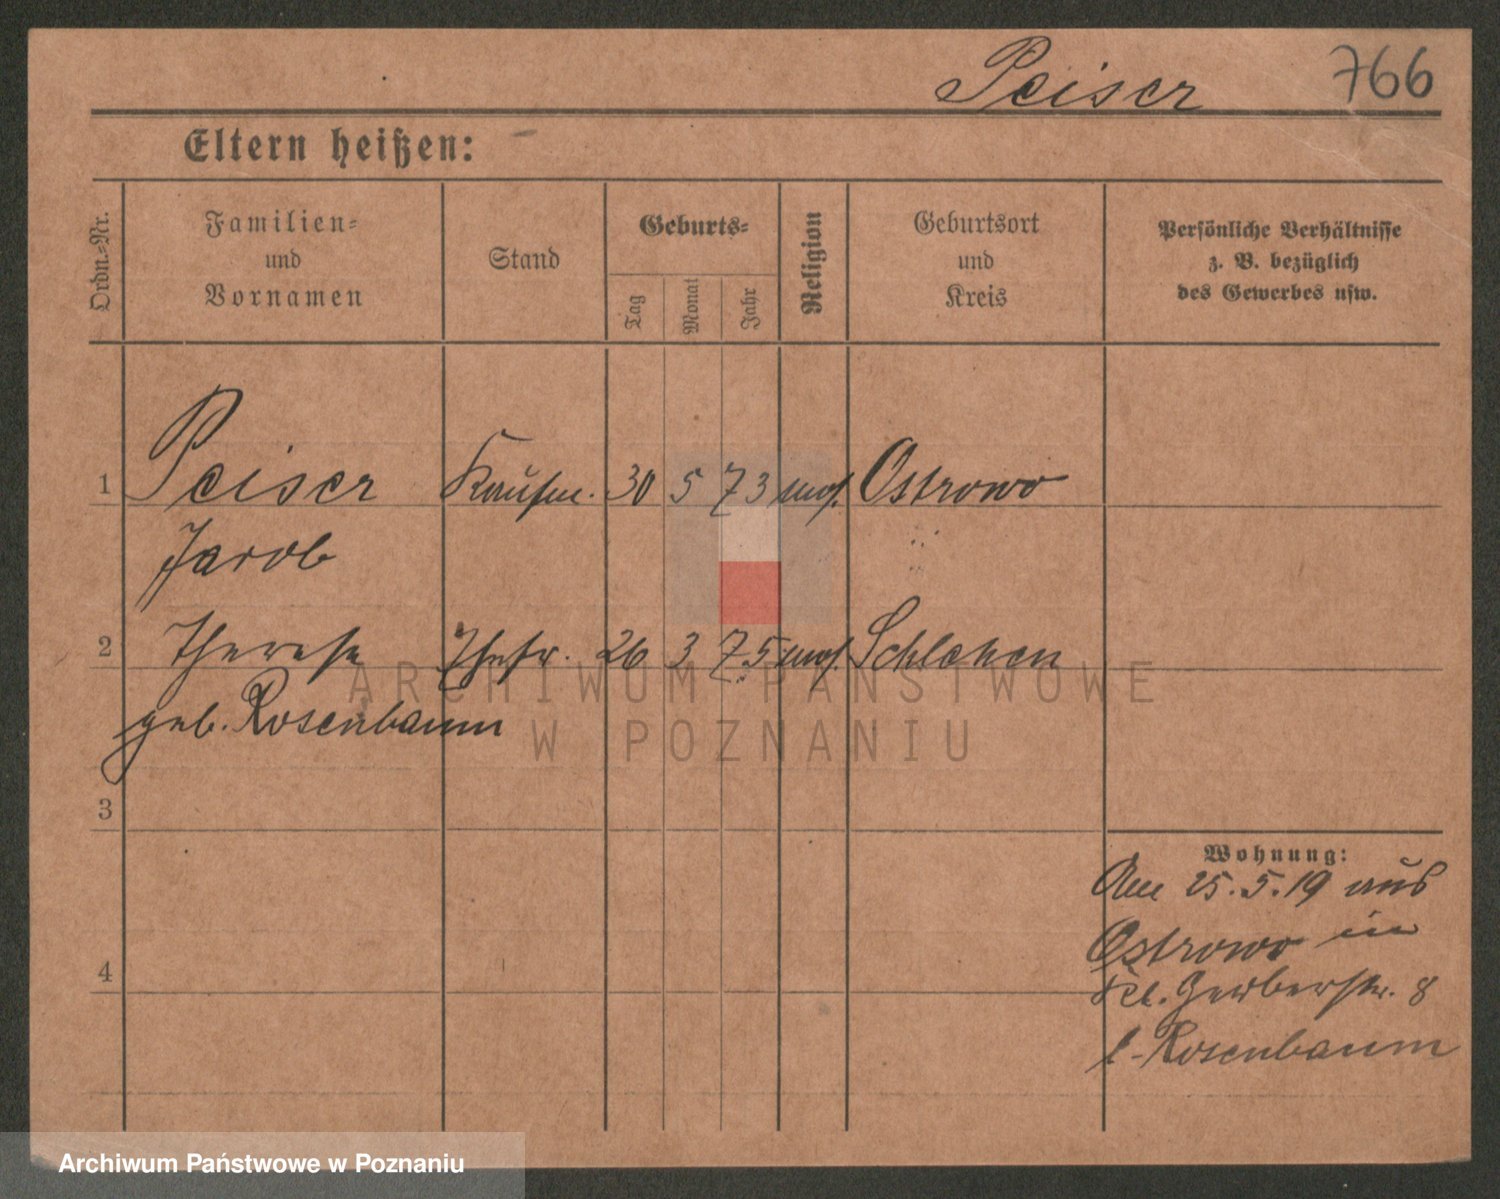 Peiser 766
Eltern heißen:
Ordn.-Nr.
Familien-
und
Vornamen
Stand
Geburts-
Tag
Monat
Jahr
Religion
Geburtsort
und
Kreis
Persönliche Verhältnisse
z. B. bezüglich
des Gewerbes usw.
1 Peiser Kaufm. 30 5 73 mos. Ostrowo
Jacob
2 Therese Ehefr. 26 3 75 mos.
geb. Rosenbaum
3
4
Wohnung:
Am 25.5.19 aus
Ostrowo in
Kl. Gerberstr. 8
b. Rosenbaum
ARCHIWUM PAŃSTWOWE
W POZNANIU
Archiwum Państwowe w Poznaniu